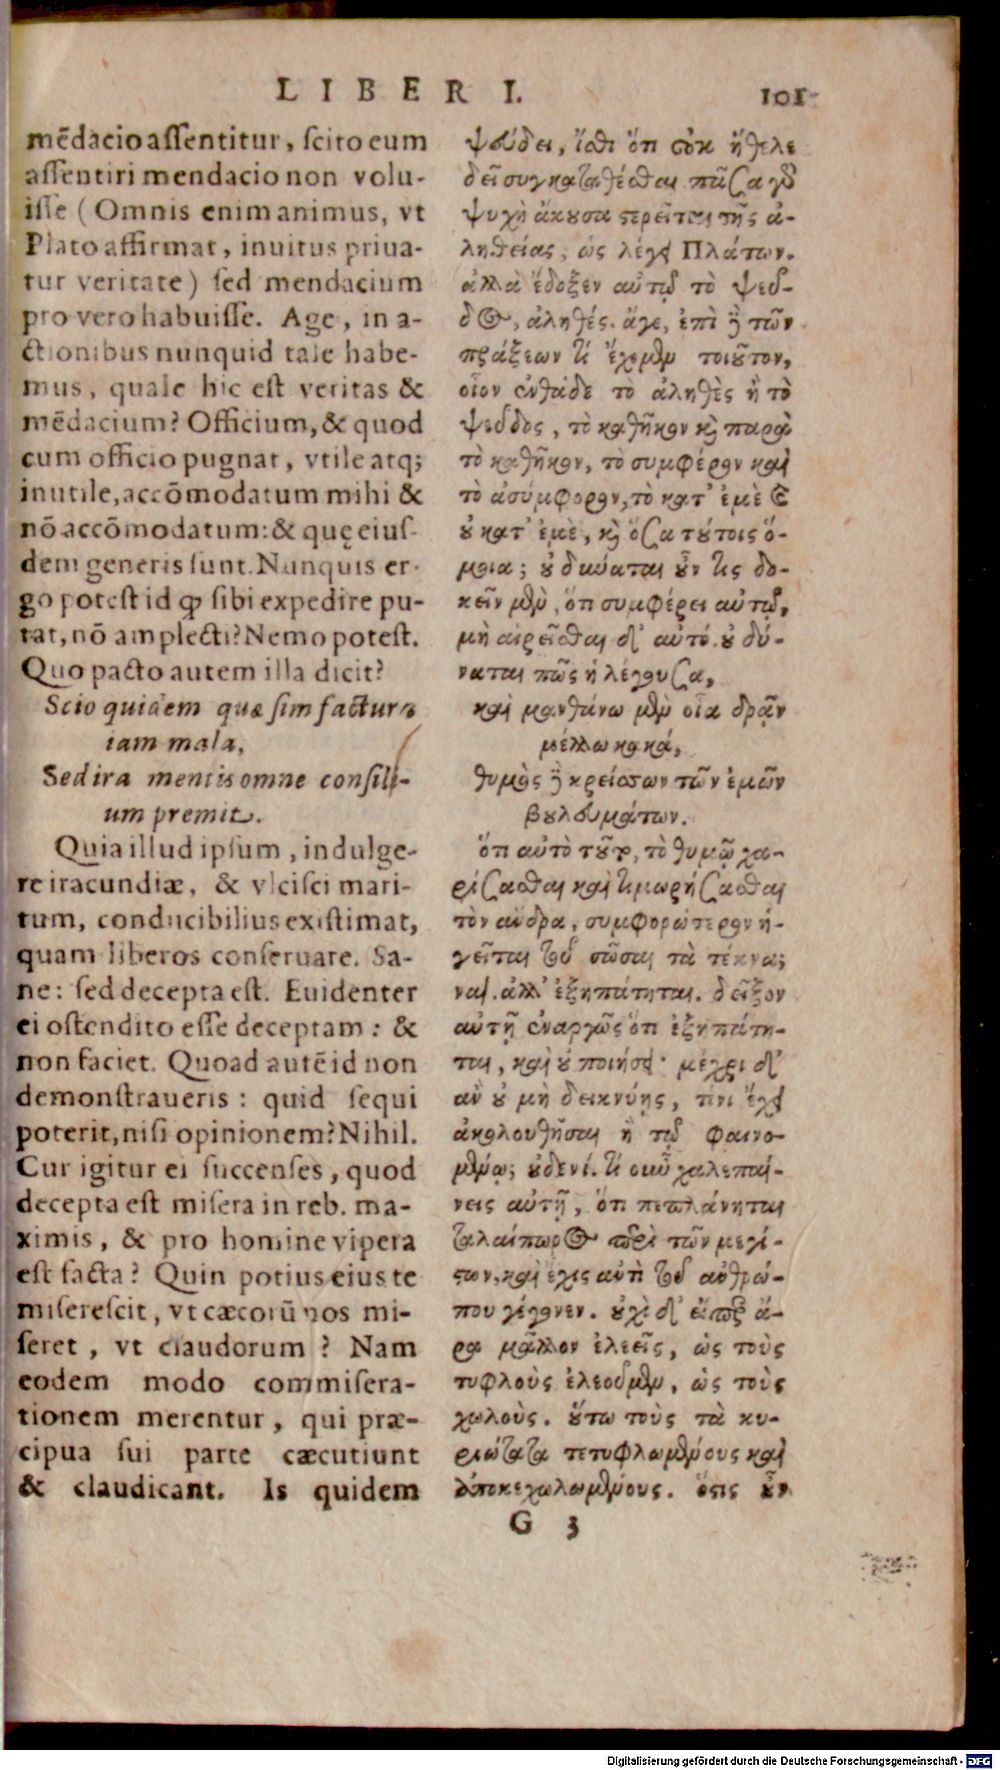 LIBER I. 101
mẽdacio assentitur, scito eum
assentiri mendacio non volu-
isse (Omnis enim animus, vt
Plato affirmat, inuitus priua-
tur veritate) sed mendacium
pro vero habuisse. Age, in a-
ctionibus nunquid tale habe-
mus, quale hic est veritas &
mẽdacium? Officium, & quod
cum officio pugnat, vtile atq;
inutile, accõmodatum mihi &
nõ accõmodatum: & quę eius-
dem generis sunt. Nunquis er-
go potest id ꝙ sibi expedire pu-
tat, nõ amplecti? Nemo potest.
Quo pacto autem illa dicit?
Scio quidem quæ sim factura
iam mala,
Sed ira mentis omne consili-
um premit.
Quia illud ipsum, indulge-
re iracundiæ, & vlcisci mari-
tum, conducibilius existimat,
quam liberos conseruare. Sa-
ne: sed decepta est. Euidenter
ei ostendito esse deceptam: &
non faciet. Quoad autẽ id non
demonstraueris: quid sequi
poterit, nisi opinionem? Nihil.
Cur igitur ei succenses, quod
decepta est misera in reb. ma-
ximis, & pro homine vipera
est facta? Quin potius eius te
miserescit, vt cæcorũ nos mi-
seret, vt claudorum? Nam
eodem modo commisera-
tionem merentur, qui præ-
cipua sui parte cæcutiunt
& claudicant. Is quidem
ψεύδει, ἴσθι ὅτι οὐκ ἤθελε
δεῖ συγκαταθέσθαι πᾶσα γὸ
ψυχὴ ἄκουσα στερεῖται τῆς ἀ-
ληθείας, ὡς λέγει Πλάτων.
ἀλλὰ ἔδοξεν αὐτῷ τὸ ψεῦ-
δος, ἀληθές. ἄγε, ἐπὶ δὲ τῶν
πράξεων τί ἔχομεν τοιοῦτον,
οἷον ἐνθάδε τὸ ἀληθὲς ἢ τὸ
ψεῦδος, τὸ καθῆκον καὶ παρὰ
τὸ καθῆκον, τὸ συμφέρον καὶ
τὸ ἀσύμφορον, τὸ κατ' ἐμὲ καὶ
οὐ κατ' ἐμὲ, καὶ ὅσα τούτοις ὅ-
μοια; οὐ δύναται οὖν τὶς δο-
κεῖν μὲν, ὅτι συμφέρει αὐτῷ,
μὴ αἱρεῖσθαι δ' αὐτό. οὐ δύ-
ναται πῶς ἡ λέγουσα,
καὶ μανθάνω μὲν οἷα δρᾷν
μέλλω κακά,
θυμὸς δὲ κρείσσων τῶν ἐμῶν
βουλευμάτων.
ὅτι αὐτὸ τοῦτο, τὸ θυμῷ χα-
ρίσασθαι καὶ τιμωρήσασθαι
τὸν ἄνδρα, συμφορώτερον ἡ-
γεῖται τοῦ σῶσαι τὰ τέκνα;
ναί. ἀλλ' ἐξηπάτηται. δεῖξον
αὐτῇ ἐναργῶς ὅτι ἐξηπάτη-
ται, καὶ οὐ ποιήσει· μέχρι δ'
ἂν οὐ μὴ δεικνύῃς, τίνι ἔχει
ἀκολουθῆσαι ἢ τῷ φαινο-
μένῳ; οὐδενί. τί οὖν χαλεπαί-
νεις αὐτῇ, ὅτι πεπλάνηται
ταλαίπωρος περὶ τῶν μεγί-
στων, καὶ ἔχις αὐτὶ τοῦ ἀνθρώ-
που γέγονεν. οὐχὶ δ' εἴπερ ἄ-
ρα μᾶλλον ἐλεεῖς, ὡς τοὺς
τυφλοὺς ἐλεοῦμεν, ὡς τοὺς
χωλοὺς. οὕτω τοὺς τὰ κυ-
ριώτατα τετυφλωμένους καὶ
ἀποκεχωλωμένους. ὅστις οὖν
G 3
Digitalisierung gefördert durch die Deutsche Forschungsgemeinschaft - DFG